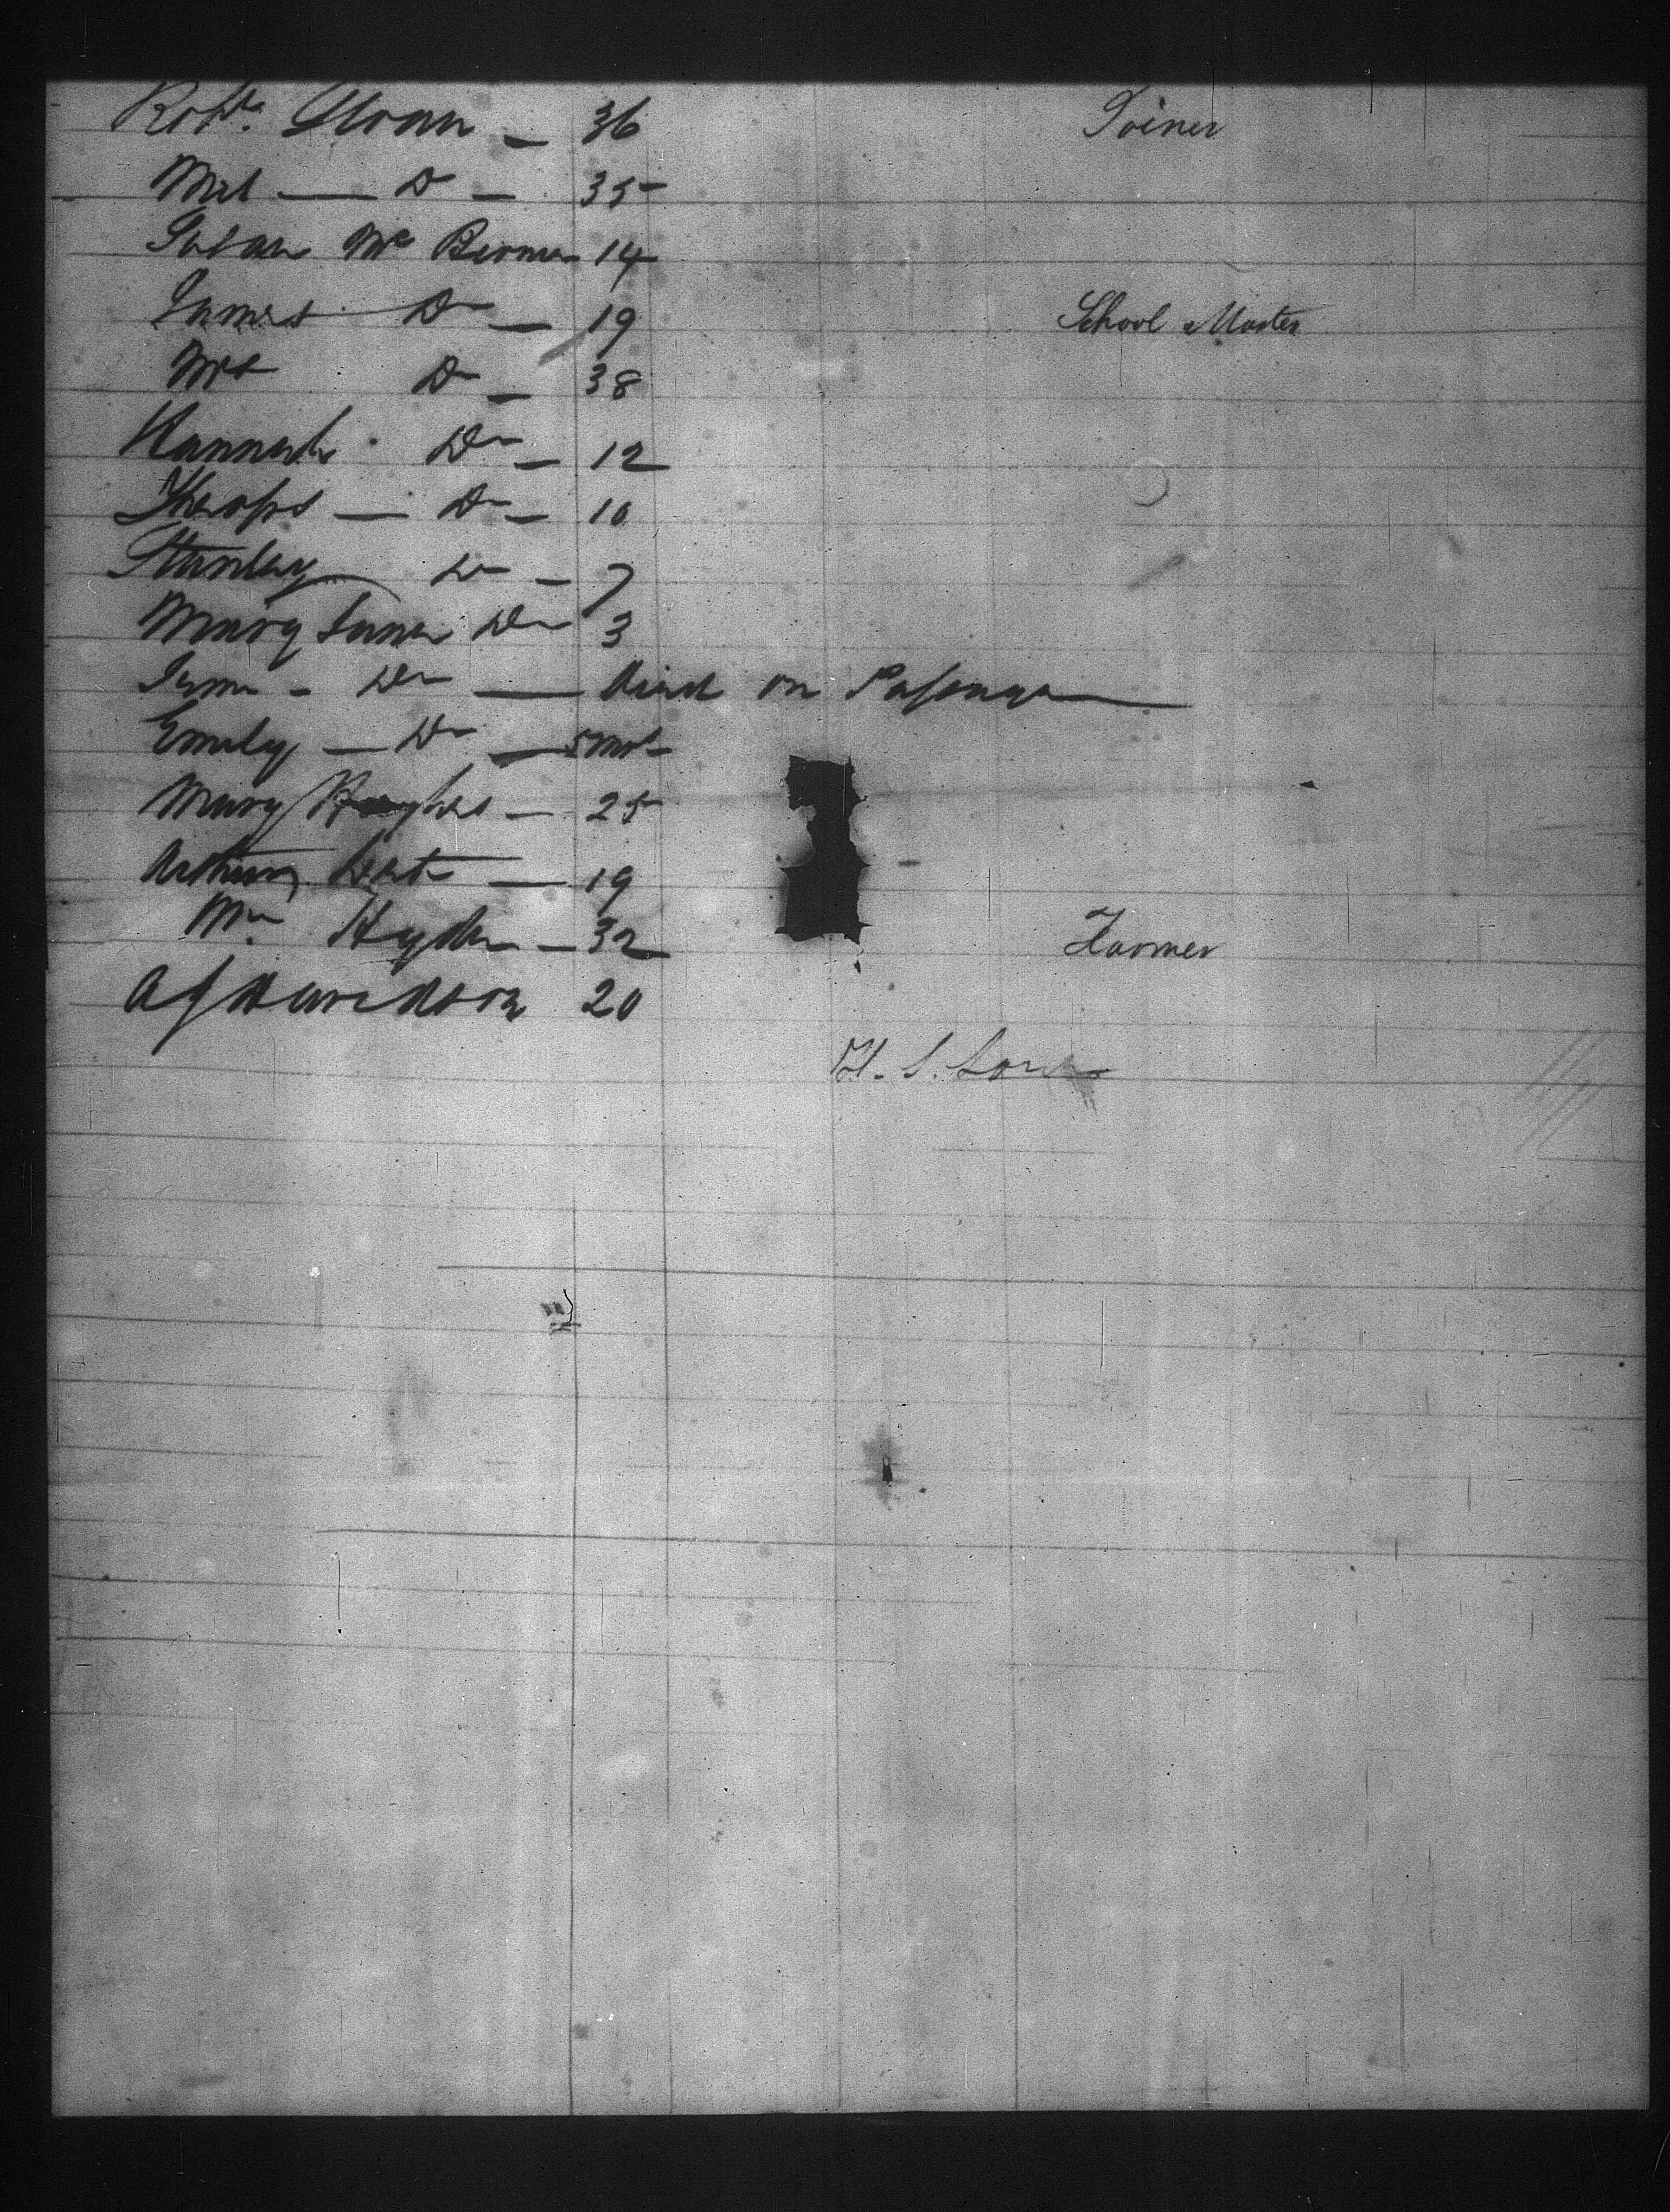 Robt. Sloan — 36 Joiner
Mrs — Do — 35
Susan Mc 14
James Do — 19 School Master
Mrs Do — 38
Hannah Do — 12
— Do — 10
Stanley Do — 7
Mary Do 3
Jane — Do — Died on Passage
Emily — Do — 5 Mos
Mary Hughes — 25
Arthur — 19
Mr. Hyde — 32 Farmer
A J Davidson 20
H. S.